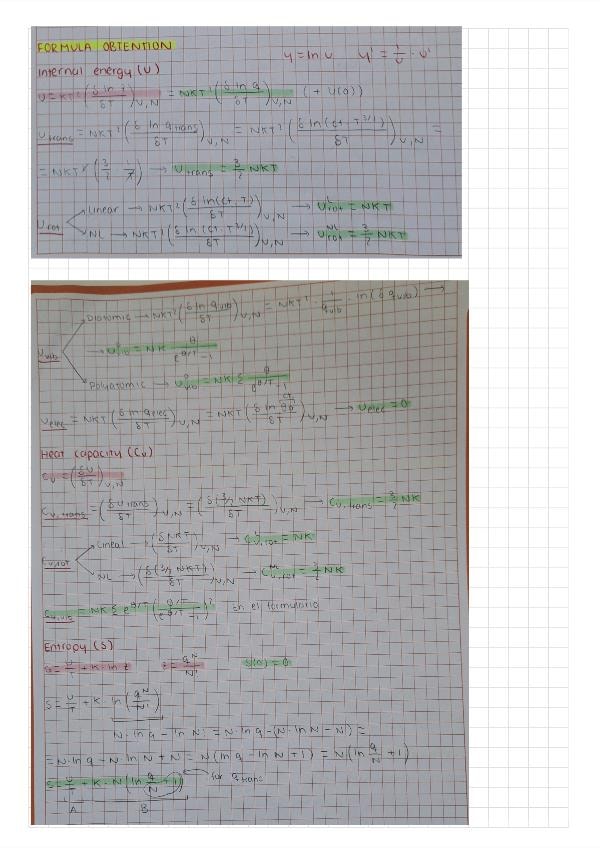 FORMULA OBTENTION
y = ln u   y' = 1/u · u'
Internal energy (U)
U = KT² (δ ln z / δT)V,N = NKT² (δ ln q / δT)V,N (+ U(0))
Utrans = NKT² (δ ln qtrans / δT)V,N = NKT² (δ ln (ct · T^3/2) / δT)V,N =
= NKT² (3/2 · 1/T) → Utrans = 3/2 NKT
Urot
Linear → NKT² (δ ln (ct · T) / δT)V,N → U^L rot = NKT
NL → NKT² (δ ln (ct · T^3/2) / δT)V,N → U^NL rot = 3/2 NKT
Uvib
Diatomic → NKT² (δ ln qvib / δT)V,N = NKT² · 1/qvib · ln (δ qvib) →
→ Uvib = NK θ / e^θ/T − 1
Polyatomic → Uvib = NK Σ θ / e^θ/T − 1
Uelec = NKT (δ ln qelec / δT)V,N = NKT (δ ln / δT)V,N → Uelec = 0
Heat capacity (Cv)
Cv = (δU / δT)V,N
Cv,trans = (δUtrans / δT)V,N = (δ(3/2 NKT) / δT)V,N → Cv,trans = 3/2 NK
Cv,rot
Lineal → (δNKT / δT)V,N → C^L v,rot = NK
NL → (δ(3/2 NKT) / δT)V,N → C^NL v,rot = 3/2 NK
Cv,vib = NK Σ e^θ/T (θ/T / e^θ/T − 1)² En el formulario
Entropy (S)
S = U/T + K · ln z   z = q^N / N!   S(0) = 0
S = U/T + K · ln (q^N / N!)
N · ln q − ln N! = N · ln q − (N · ln N − N) =
= N · ln q − N · ln N + N = N (ln q − ln N + 1) = N (ln q/N + 1)
S = U/T + K · N (ln q/N + 1) for qtrans
A   B